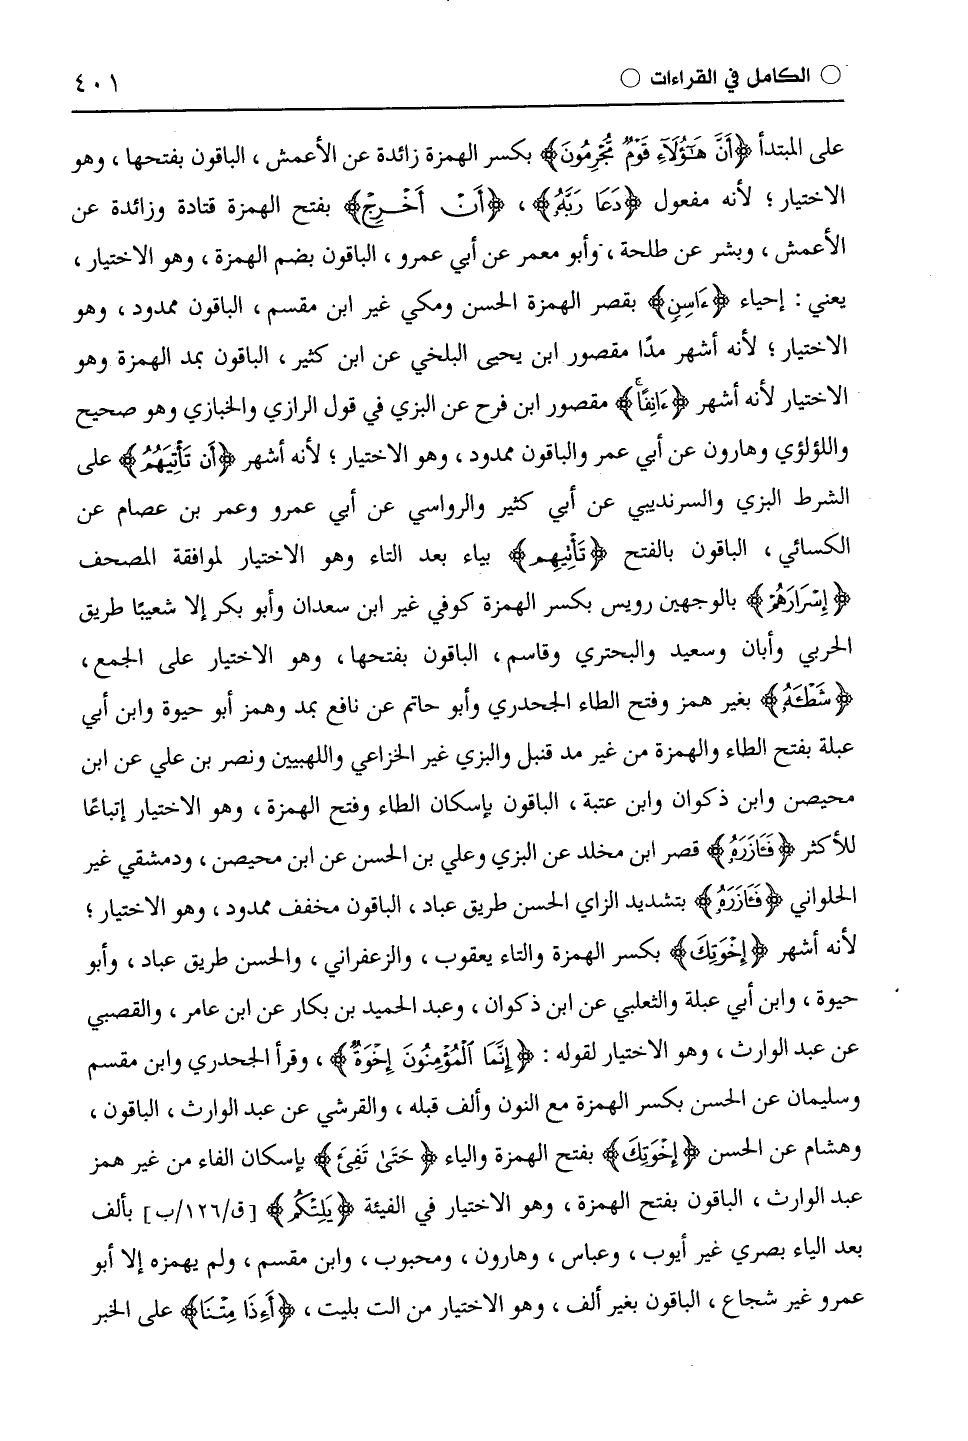 ○ الكامل في القراءات ○ ٤٠١
على المبتدأ ﴿أَنَّ هَٰٓؤُلَآءِ قَوۡمٌ مُّجۡرِمُونَ﴾ بكسر الهمزة زائدة عن الأعمش ، الباقون بفتحها ، وهو
الاختيار ؛ لأنه مفعول ﴿دَعَا رَبَّهُ﴾ ، ﴿أَنۡ أُخۡرَجَ﴾ بفتح الهمزة قتادة وزائدة عن
الأعمش ، وبشر عن طلحة ، وأبو معمر عن أبي عمرو ، الباقون بضم الهمزة ، وهو الاختيار ،
يعني : إحياء ﴿ءَاسِنٖ﴾ بقصر الهمزة الحسن ومكي غير ابن مقسم ، الباقون ممدود ، وهو
الاختيار ؛ لأنه أشهر مدًا مقصور ابن يحيى البلخي عن ابن كثير ، الباقون بمد الهمزة وهو
الاختيار لأنه أشهر ﴿ءَانِفًاۚ﴾ مقصور ابن فرح عن البزي في قول الرازي والخبازي وهو صحيح
واللؤلؤي وهارون عن أبي عمر والباقون ممدود ، وهو الاختيار ؛ لأنه أشهر ﴿أَن تَأۡتِيَهُم﴾ على
الشرط البزي والسرنديبي عن أبي كثير والرواسي عن أبي عمرو وعمر بن عصام عن
الكسائي ، الباقون بالفتح ﴿تَأۡتِيهِم﴾ بياء بعد التاء وهو الاختيار لموافقة المصحف
﴿إِسۡرَارَهُمۡ﴾ بالوجهين رويس بكسر الهمزة كوفي غير ابن سعدان وأبو بكر إلا شعيبًا طريق
الحربي وأبان وسعيد والبحتري وقاسم، الباقون بفتحها، وهو الاختيار على الجمع،
﴿شَطۡـَٔهُۥ﴾ بغير همز وفتح الطاء الجحدري وأبو حاتم عن نافع بمد وهمز أبو حيوة وابن أبي
عبلة بفتح الطاء والهمزة من غير مد قنبل والبزي غير الخزاعي واللهبيين ونصر بن علي عن ابن
محيصن وابن ذكوان وابن عتبة ، الباقون بإسكان الطاء وفتح الهمزة ، وهو الاختيار إتباعًا
للأكثر ﴿فَـَٔازَرَهُۥ﴾ قصر ابن مخلد عن البزي وعلي بن الحسن عن ابن محيصن ، ودمشقي غير
الحلواني ﴿فَـَٔازَرَهُۥ﴾ بتشديد الزاي الحسن طريق عباد ، الباقون مخفف ممدود ، وهو الاختيار ؛
لأنه أشهر ﴿إِخۡوَتِكَ﴾ بكسر الهمزة والتاء يعقوب ، والزعفراني ، والحسن طريق عباد ، وأبو
حيوة ، وابن أبي عبلة والثعلبي عن ابن ذكوان ، وعبد الحميد بن بكار عن ابن عامر ، والقصبي
عن عبد الوارث ، وهو الاختيار لقوله : ﴿إِنَّمَا ٱلۡمُؤۡمِنُونَ إِخۡوَةٞ﴾ ، وقرأ الجحدري وابن مقسم
وسليمان عن الحسن بكسر الهمزة مع النون وألف قبله ، والقرشي عن عبد الوارث ، الباقون ،
وهشام عن الحسن ﴿إِخۡوَتِكَ﴾ بفتح الهمزة والياء ﴿حَتَّىٰ تَفِيٓءَ﴾ بإسكان الفاء من غير همز
عبد الوارث ، الباقون بفتح الهمزة ، وهو الاختيار في الفيئة ﴿يَلِتۡكُم﴾ [ق/١٢٦/ب] بألف
بعد الياء بصري غير أيوب ، وعباس ، وهارون ، ومحبوب ، وابن مقسم ، ولم يهمزه إلا أبو
عمرو غير شجاع ، الباقون بغير ألف ، وهو الاختيار من الت بليت ، ﴿أَءِذَا مِتۡنَا﴾ على الخبر